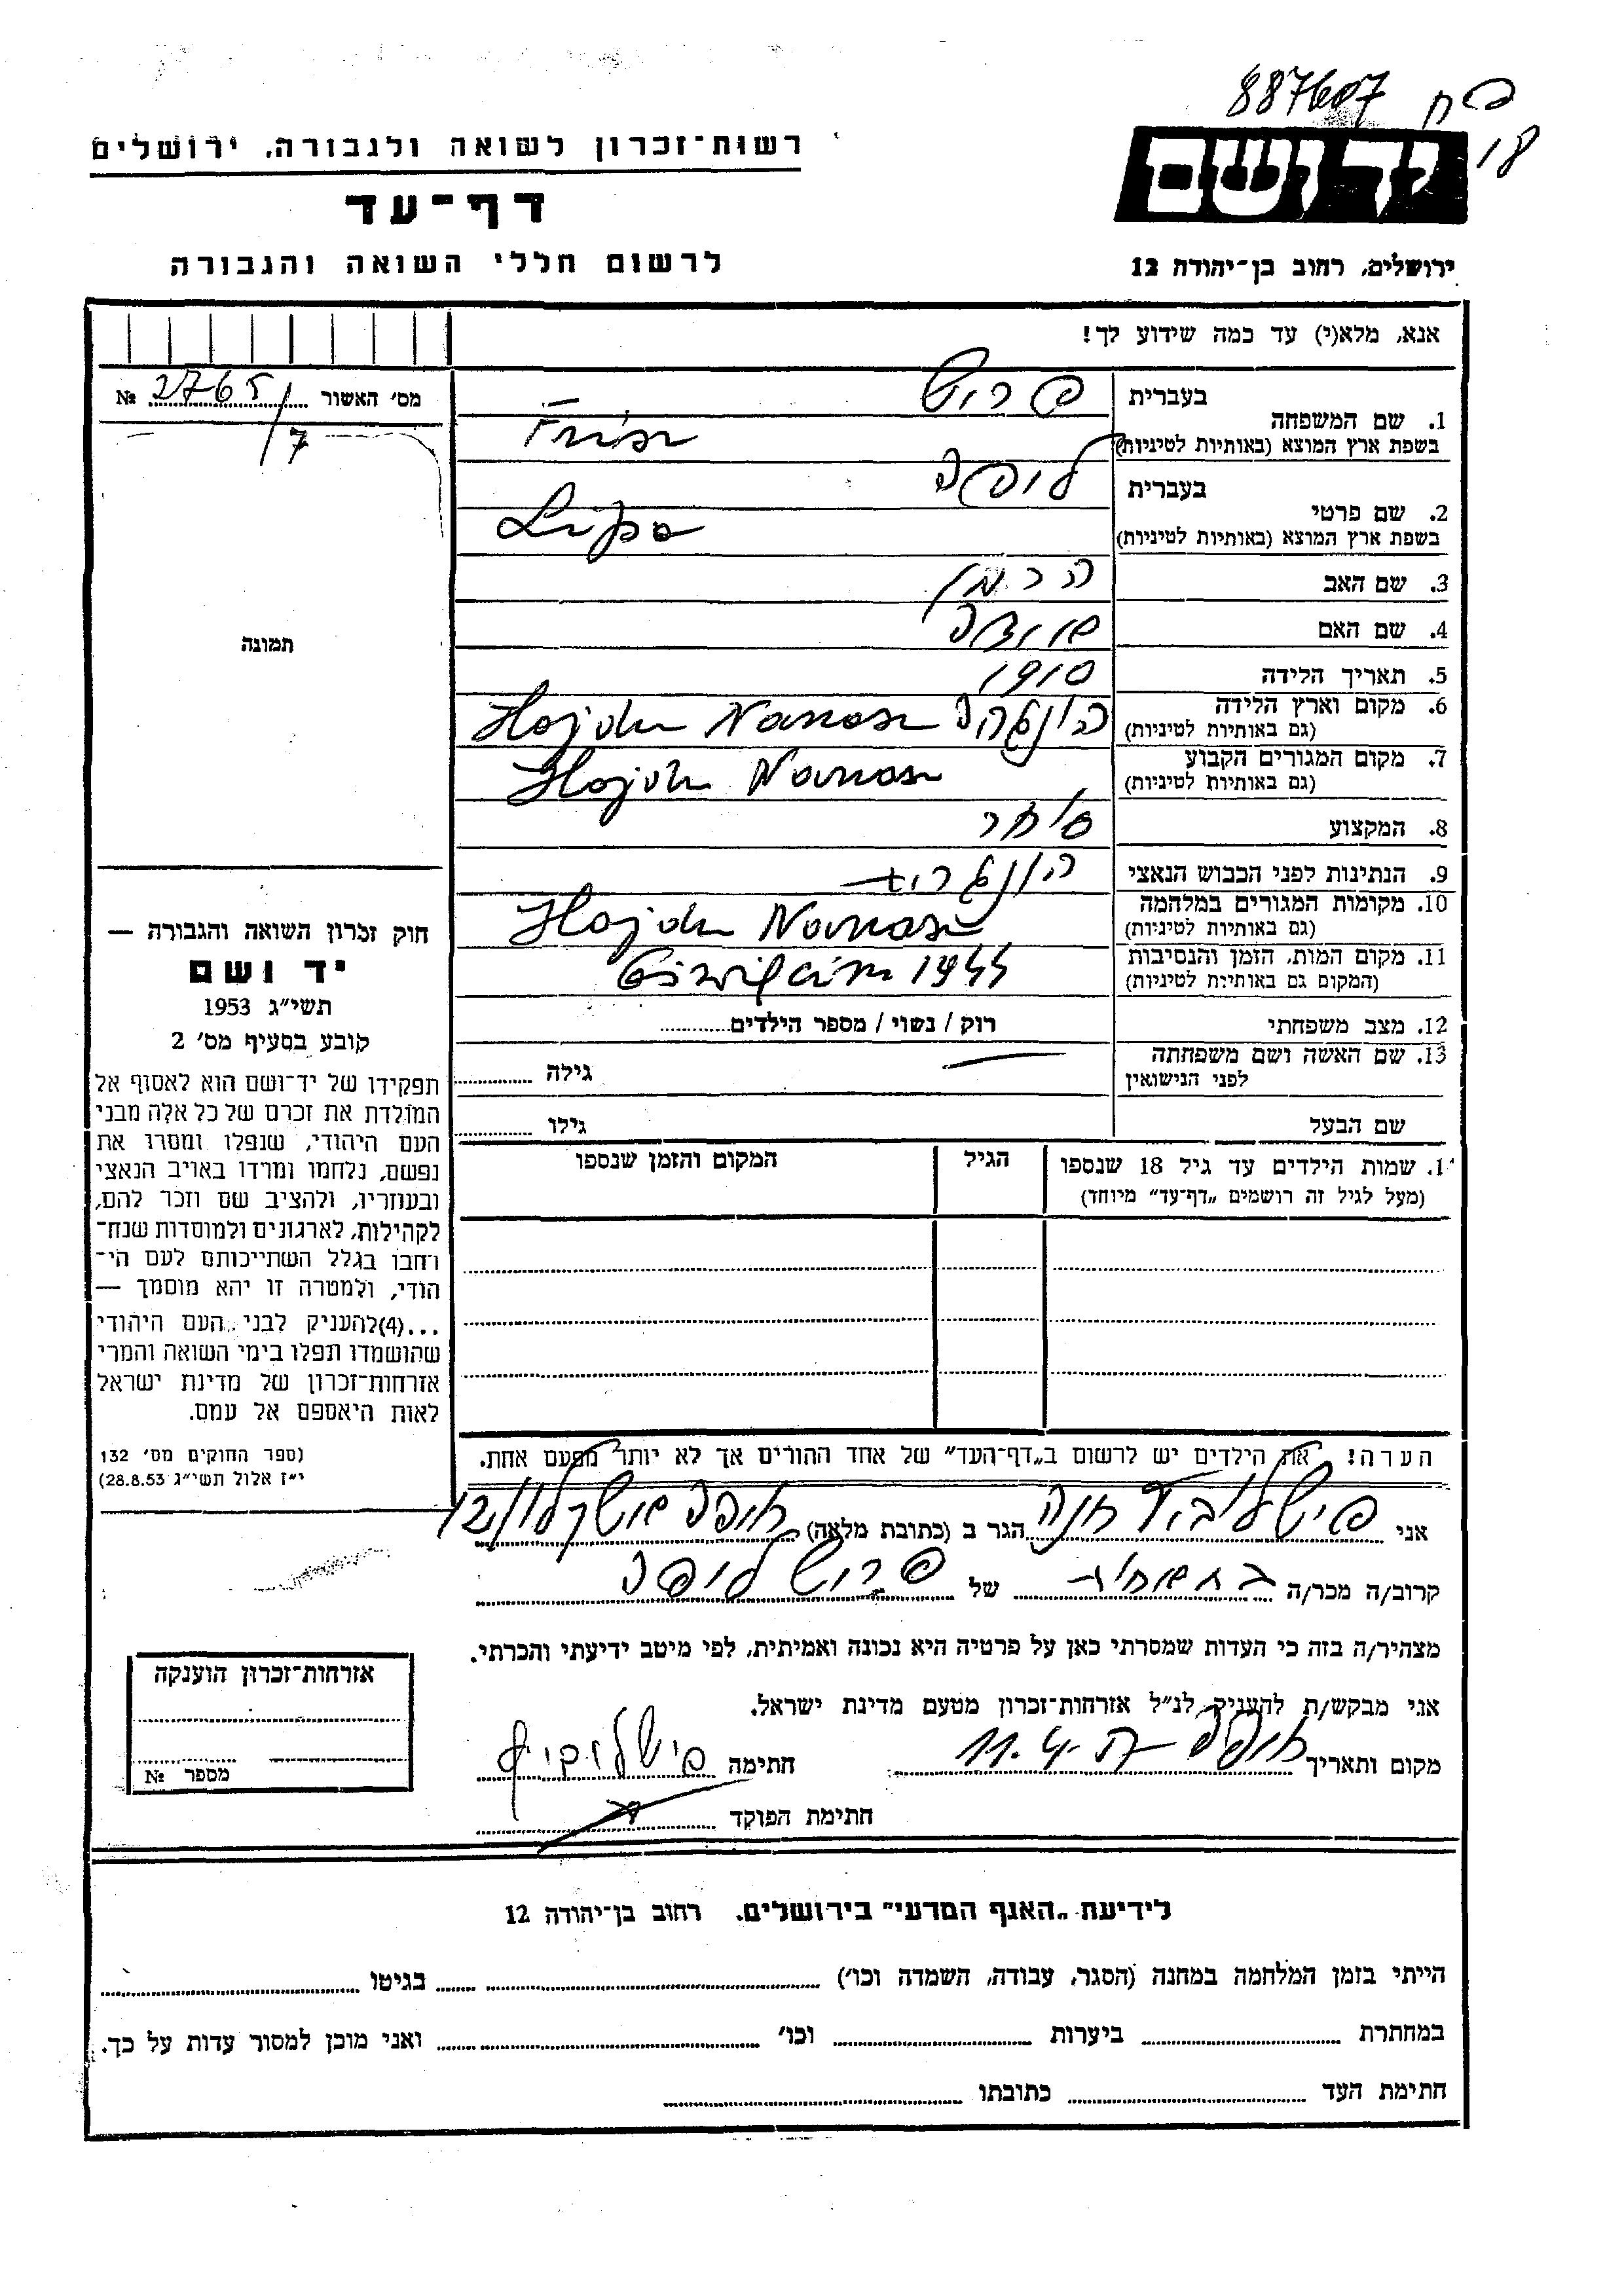 887607 פ ח
18
יד ושם
ירושלים, רחוב בן־יהודה 12
רשות־זכרון לשואה ולגבורה, ירושלים
דף־עד
לרשום חללי השואה והגבורה
אנא, מלא(י) עד כמה שידוע לך!
מס׳ האשור 2765/7 №
תמונה
1. שם המשפחה בעברית פריש
בשפת ארץ המוצא (באותיות לטיניות)
2. שם פרטי בעברית ליפא
בשפת ארץ המוצא (באותיות לטיניות) Lipa
3. שם האב הרמן
4. שם האם
5. תאריך הלידה 1910
6. מקום וארץ הלידה הונגריה Hajdu Nanas
(גם באותיות לטיניות)
7. מקום המגורים הקבוע Hajdu Nanas
(גם באותיות לטיניות)
8. המקצוע סוחר
9. הנתינות לפני הכבוש הנאצי הונגרית
10. מקומות המגורים במלחמה Hajdu Nanas
(גם באותיות לטיניות)
11. מקום המות, הזמן והנסיבות 1944
(המקום גם באותיות לטיניות)
12. מצב משפחתי רוק / נשוי / מספר הילדים
13. שם האשה ושם משפחתה גילה
לפני הנישואין
שם הבעל גילו
1. שמות הילדים עד גיל 18 שנספו הגיל המקום והזמן שנספו
(מעל לגיל זה רושמים „דף־עד״ מיוחד)
הערה! את הילדים יש לרשום ב„דף־העד״ של אחד ההורים אך לא יותר מפעם אחת.
חוק זכרון השואה והגבורה —
יד ושם
תשי״ג 1953
קובע בסעיף מס׳ 2
תפקידו של יד־ושם הוא לאסוף אל
המולדת את זכרם של כל אלה מבני
העם היהודי, שנפלו ומסרו את
נפשם, נלחמו ומרדו באויב הנאצי
ובעוזריו, ולהציב שם וזכר להם,
לקהילות, לארגונים ולמוסדות שנח־
רבו בגלל השתייכותם לעם הי־
הודי, ולמטרה זו יהא מוסמך —
...(4)להעניק לבני העם היהודי
שהושמדו ונפלו בימי השואה והמרי
אזרחות־זכרון של מדינת ישראל
לאות היאספם אל עמם.
(ספר החוקים מס׳ 132
י״ז אלול תשי״ג 28.8.53)
אני חנה הגר ב (כתובת מלאה) חיפה
קרוב/ה מכר/ה של פריש ליפא
מצהיר/ה בזה כי העדות שמסרתי כאן על פרטיה היא נכונה ואמיתית, לפי מיטב ידיעתי והכרתי.
אני מבקש/ת להעניק לנ״ל אזרחות־זכרון מטעם מדינת ישראל.
מקום ותאריך חיפה 11.4 חתימה
חתימת הפוקד
אזרחות־זכרון הוענקה
מספר №
לידיעת „האגף המדעי״ בירושלים, רחוב בן־יהודה 12
הייתי בזמן המלחמה במחנה (הסגר, עבודה, השמדה וכו׳) בגיטו
במחתרת ביערות וכו׳ ואני מוכן למסור עדות על כך.
חתימת העד כתובתו